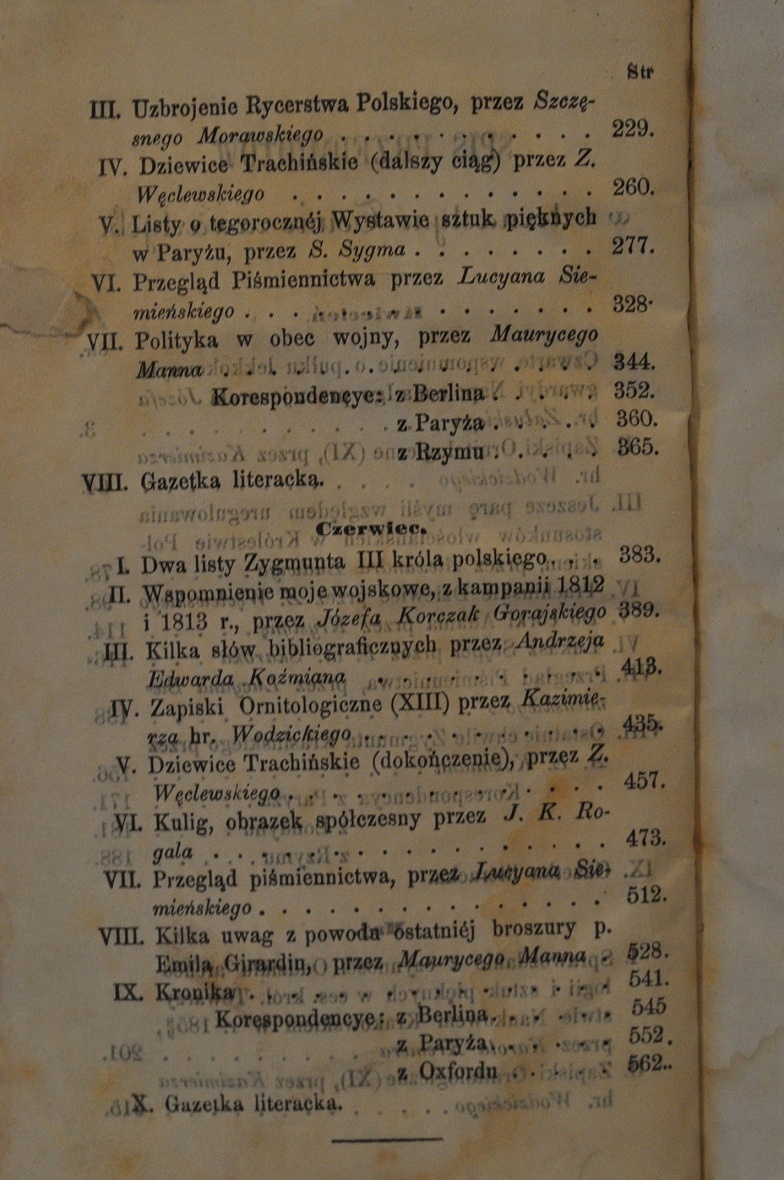 Str
III. Uzbrojenie Rycerstwa Polskiego, przez Szczę-
snego Morawskiego . . . . . . . . . . . . 229.
IV. Dziewice Trachińskie (dalszy ciąg) przez Z.
Węclewskiego . . . . . . . . . . . . . 260.
V. Listy o tegorocznéj Wystawie sztuk pięknych
w Paryżu, przez S. Sygma . . . . . . . . 277.
VI. Przegląd Piśmiennictwa przez Lucyana Sie-
mieńskiego . . . . . . . . . . . . . . 328.
VII. Polityka w obec wojny, przez Maurycego
Manna . . . . . . . . . . . . . . . . 344.
Korespondencye: z Berlina . . . . . 352.
z Paryża . . . . . . 360.
z Rzymu . . . . . . 365.
VIII. Gazetka literacka.
Czerwiec.
I. Dwa listy Zygmunta III króla polskiego. . . 383.
II. Wspomnienie moje wojskowe, z kampanii 1812
i 1813 r., przez Józefa Korczak Gorajskiego 389.
III. Kilka słów bibliograficznych przez Andrzeja
Edwarda Koźmiana . . . . . . . . . . 413.
IV. Zapiski Ornitologiczne (XIII) przez Kazimie-
rza hr. Wodzickiego . . . . . . . . . . 435.
V. Dziewice Trachińskie (dokończenie), przez Z.
Węclewskiego . . . . . . . . . . . . . 457.
VI. Kulig, obrazek spółczesny przez J. K. Ro-
gala . . . . . . . . . . . . . . . . 473.
VII. Przegląd piśmiennictwa, przez Lucyana Sie-
mieńskiego . . . . . . . . . . . . . . 512.
VIII. Kilka uwag z powodu ostatniéj broszury p.
Emila Girardin, przez Maurycego Manna . 528.
IX. Kronika . . . . . . . . . . . . . . 541.
Korespondencye: z Berlina . . . . . 545
z Paryża . . . . . . 552.
z Oxfordu . . . . . 562.
X. Gazetka literacka.